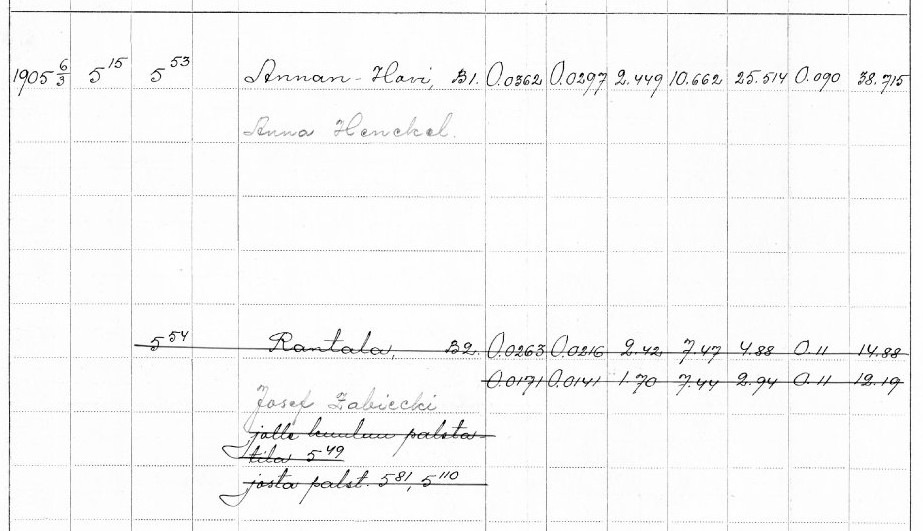 1905 6/3 5¹⁵ 5⁵³ Annan-Hovi, B1. 0.0362 0.0297 2.449 10.662 25.514 0.090 38.715
Anna Henckel.
5⁵⁴ Rantala, B2. 0.0263 0.0216 2.42 7.47 4.88 0.11 14.88
0.0171 0.0141 1.70 7.44 2.94 0.11 12.19
Josef Zabiecki
jolle kuuluu palsta-
tila 5⁴⁹
josta palst. 5⁸¹, 5¹¹⁰